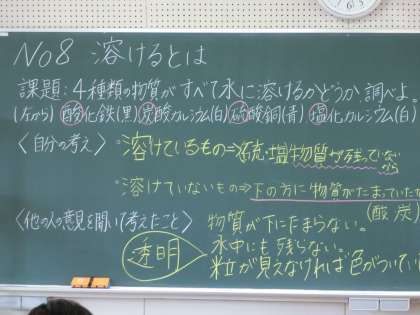 No8 溶けるとは
課題:4種類の物質がすべて水に溶けるかどうか調べよ。
(左から) 酸化鉄(黒) 炭酸カルシウム(白) 硫酸銅(青) 塩化カルシウム(白)
〈自分の考え〉 ・溶けているもの⇒硫・塩 物質が残っていないから
・溶けていないもの⇒下の方に物質がたまっていた
(酸炭)
〈他の人の意見を聞いて考えたこと〉 物質が下にたまらない。
透明 水中にも残らない。
粒が見えなければ色がついてい